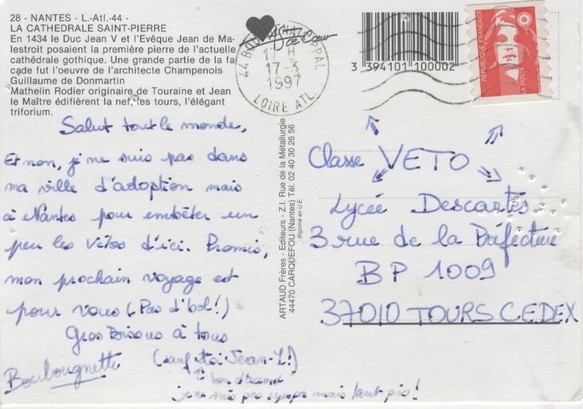 28 - NANTES - L.-Atl.-44 -
LA CATHEDRALE SAINT-PIERRE
En 1434 le Duc Jean V et l'Evêque Jean de Ma-
lestroit posaient la première pierre de l'actuelle
cathédrale gothique. Une grande partie de la fa-
çade fut l'oeuvre de l'architecte Champenois
Guillaume de Donmartin
Mathelin Rodier originaire de Touraine et Jean
le Maître édifièrent la nef, les tours, l'élégant
triforium.
Salut tout le monde,
Et non, je ne suis pas dans
ma ville d'adoption mais
à Nantes pour embêter un
peu les Vétos d'ici. Promis,
mon prochain voyage est
pour vous (Pas d'bol!)
Gros Bisous à tous
(sauf toi Jean-L!)
Bourbougnette
bon d'accord
je ne suis pas sympa mais tant pis!
ARTAUD Frères - Editeurs - Z.I. Rue de la Métallurgie
44470 CARQUEFOU (Nantes) Tél. 02 40 30 26 56
Imprimé en U.E.
17-3
1997
LOIRE ATL.
3 394101 100002
LA POSTE
Classe VETO
Lycée Descartes
3 rue de la Préfecture
BP 1009
37010 TOURS CEDEX